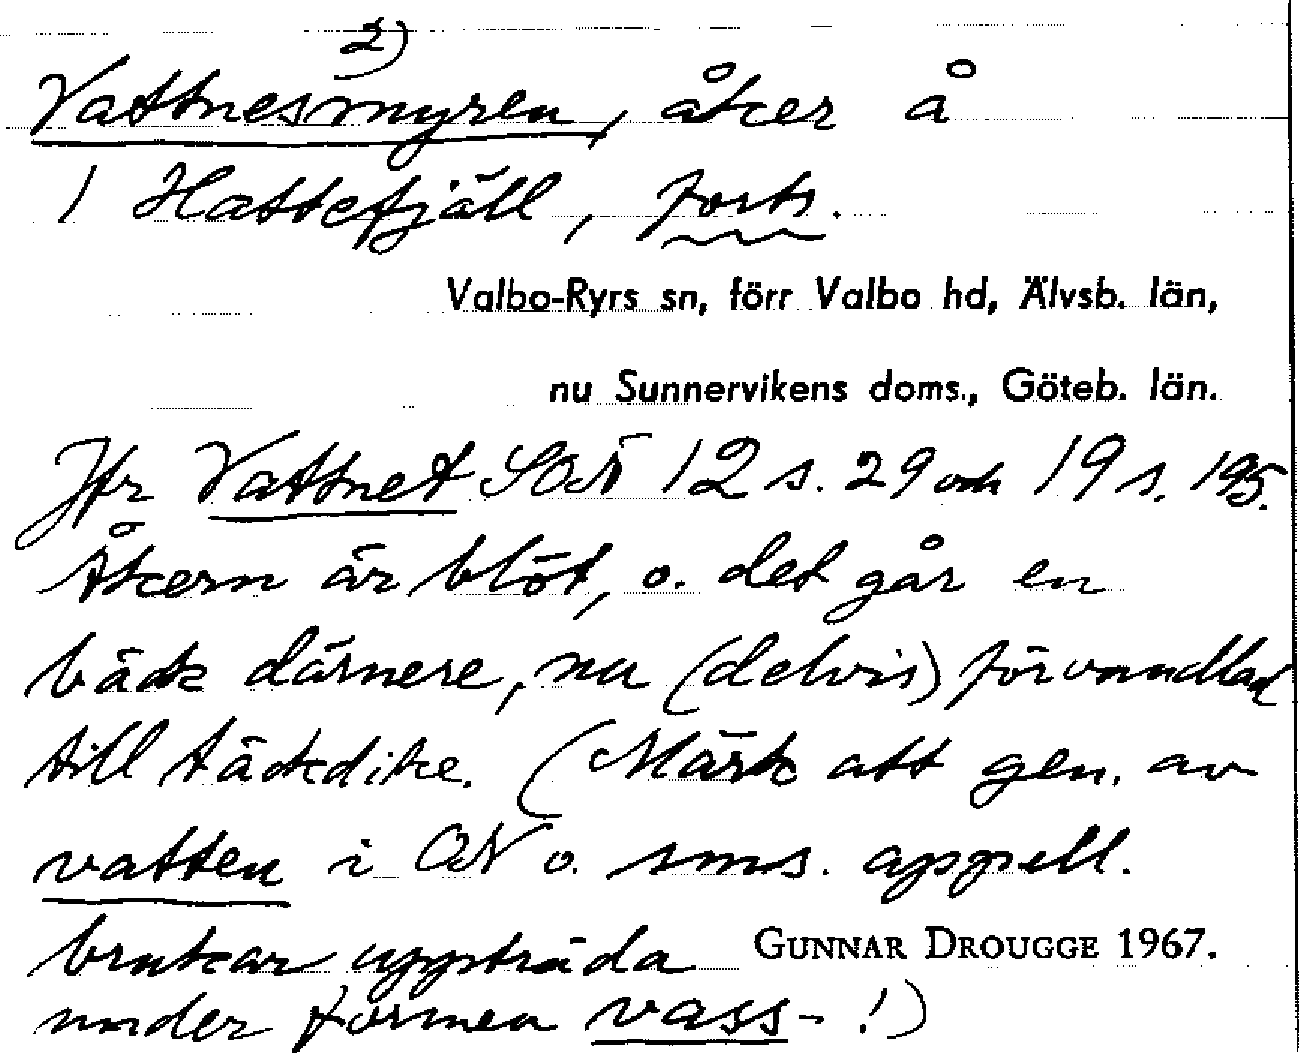 2)
Vattnesmyren, åker å
1 Hattefjäll, forts.
Valbo-Ryrs sn, förr Valbo hd, Älvsb. län,
nu Sunnervikens doms., Göteb. län.
Jfr Vattnet SOÄ 12 s. 29 och 19 s. 195.
Åkern är blöt, o. det går en
bäck därnere, nu (delvis) förvandlad
till täckdike. (Märk att gen. av
vatten i ON o. sms. appell.
brukar uppträda
GUNNAR DROUGGE 1967.
under formen vass- !)